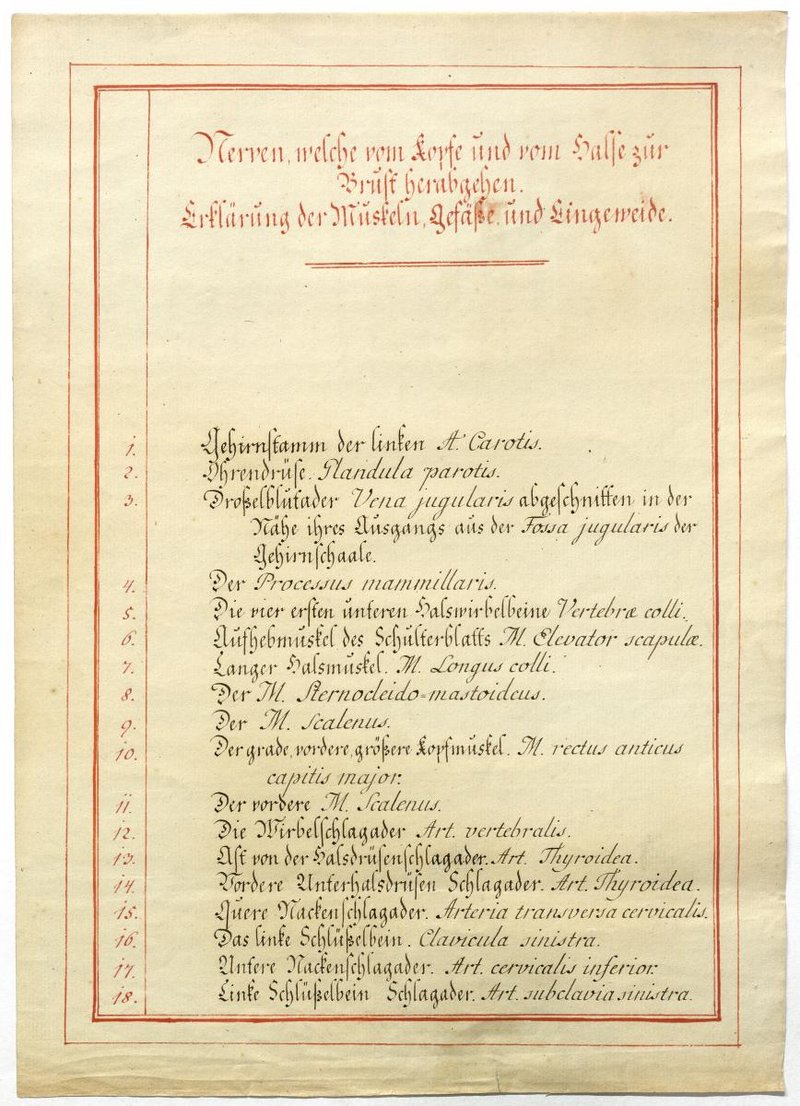 Nerven, welche vom Kopfe und vom Halse zur
Brust herabgehen.
Erklärung der Muskeln, Gefäße und Eingeweide.
1. Gehirnstamm der linken A. Carotis.
2. Ohrendrüse. Glandula parotis.
3. Droßelblutader Vena jugularis abgeschnitten in der
Nähe ihres Ausgangs aus der Fossa jugularis der
Gehirnschaale.
4. Der Processus mammillaris.
5. Die vier ersten unteren Halswirbelbeine Vertebræ colli.
6. Aufhebmuskel des Schulterblatts M. Elevator scapulæ.
7. Langer Halsmuskel. M. Longus colli.
8. Der M. Sternocleido=mastoideus.
9. Der M. Scalenus.
10. Der grade, vordere, größere Kopfmuskel. M. rectus anticus
capitis major.
11. Der vordere M. Scalenus.
12. Die Wirbelschlagader Art. vertebralis.
13. Ast von der Halsdrüsenschlagader. Art. Thyroidea.
14. Vordere Unterhalsdrüsen Schlagader. Art. Thyroidea.
15. Quere Nackenschlagader. Arteria transversa cervicalis.
16. Das linke Schlüßelbein. Clavicula sinistra.
17. Untere Nackenschlagader. Art. cervicalis inferior.
18. Linke Schlüßelbein Schlagader. Art. subclavia sinistra.